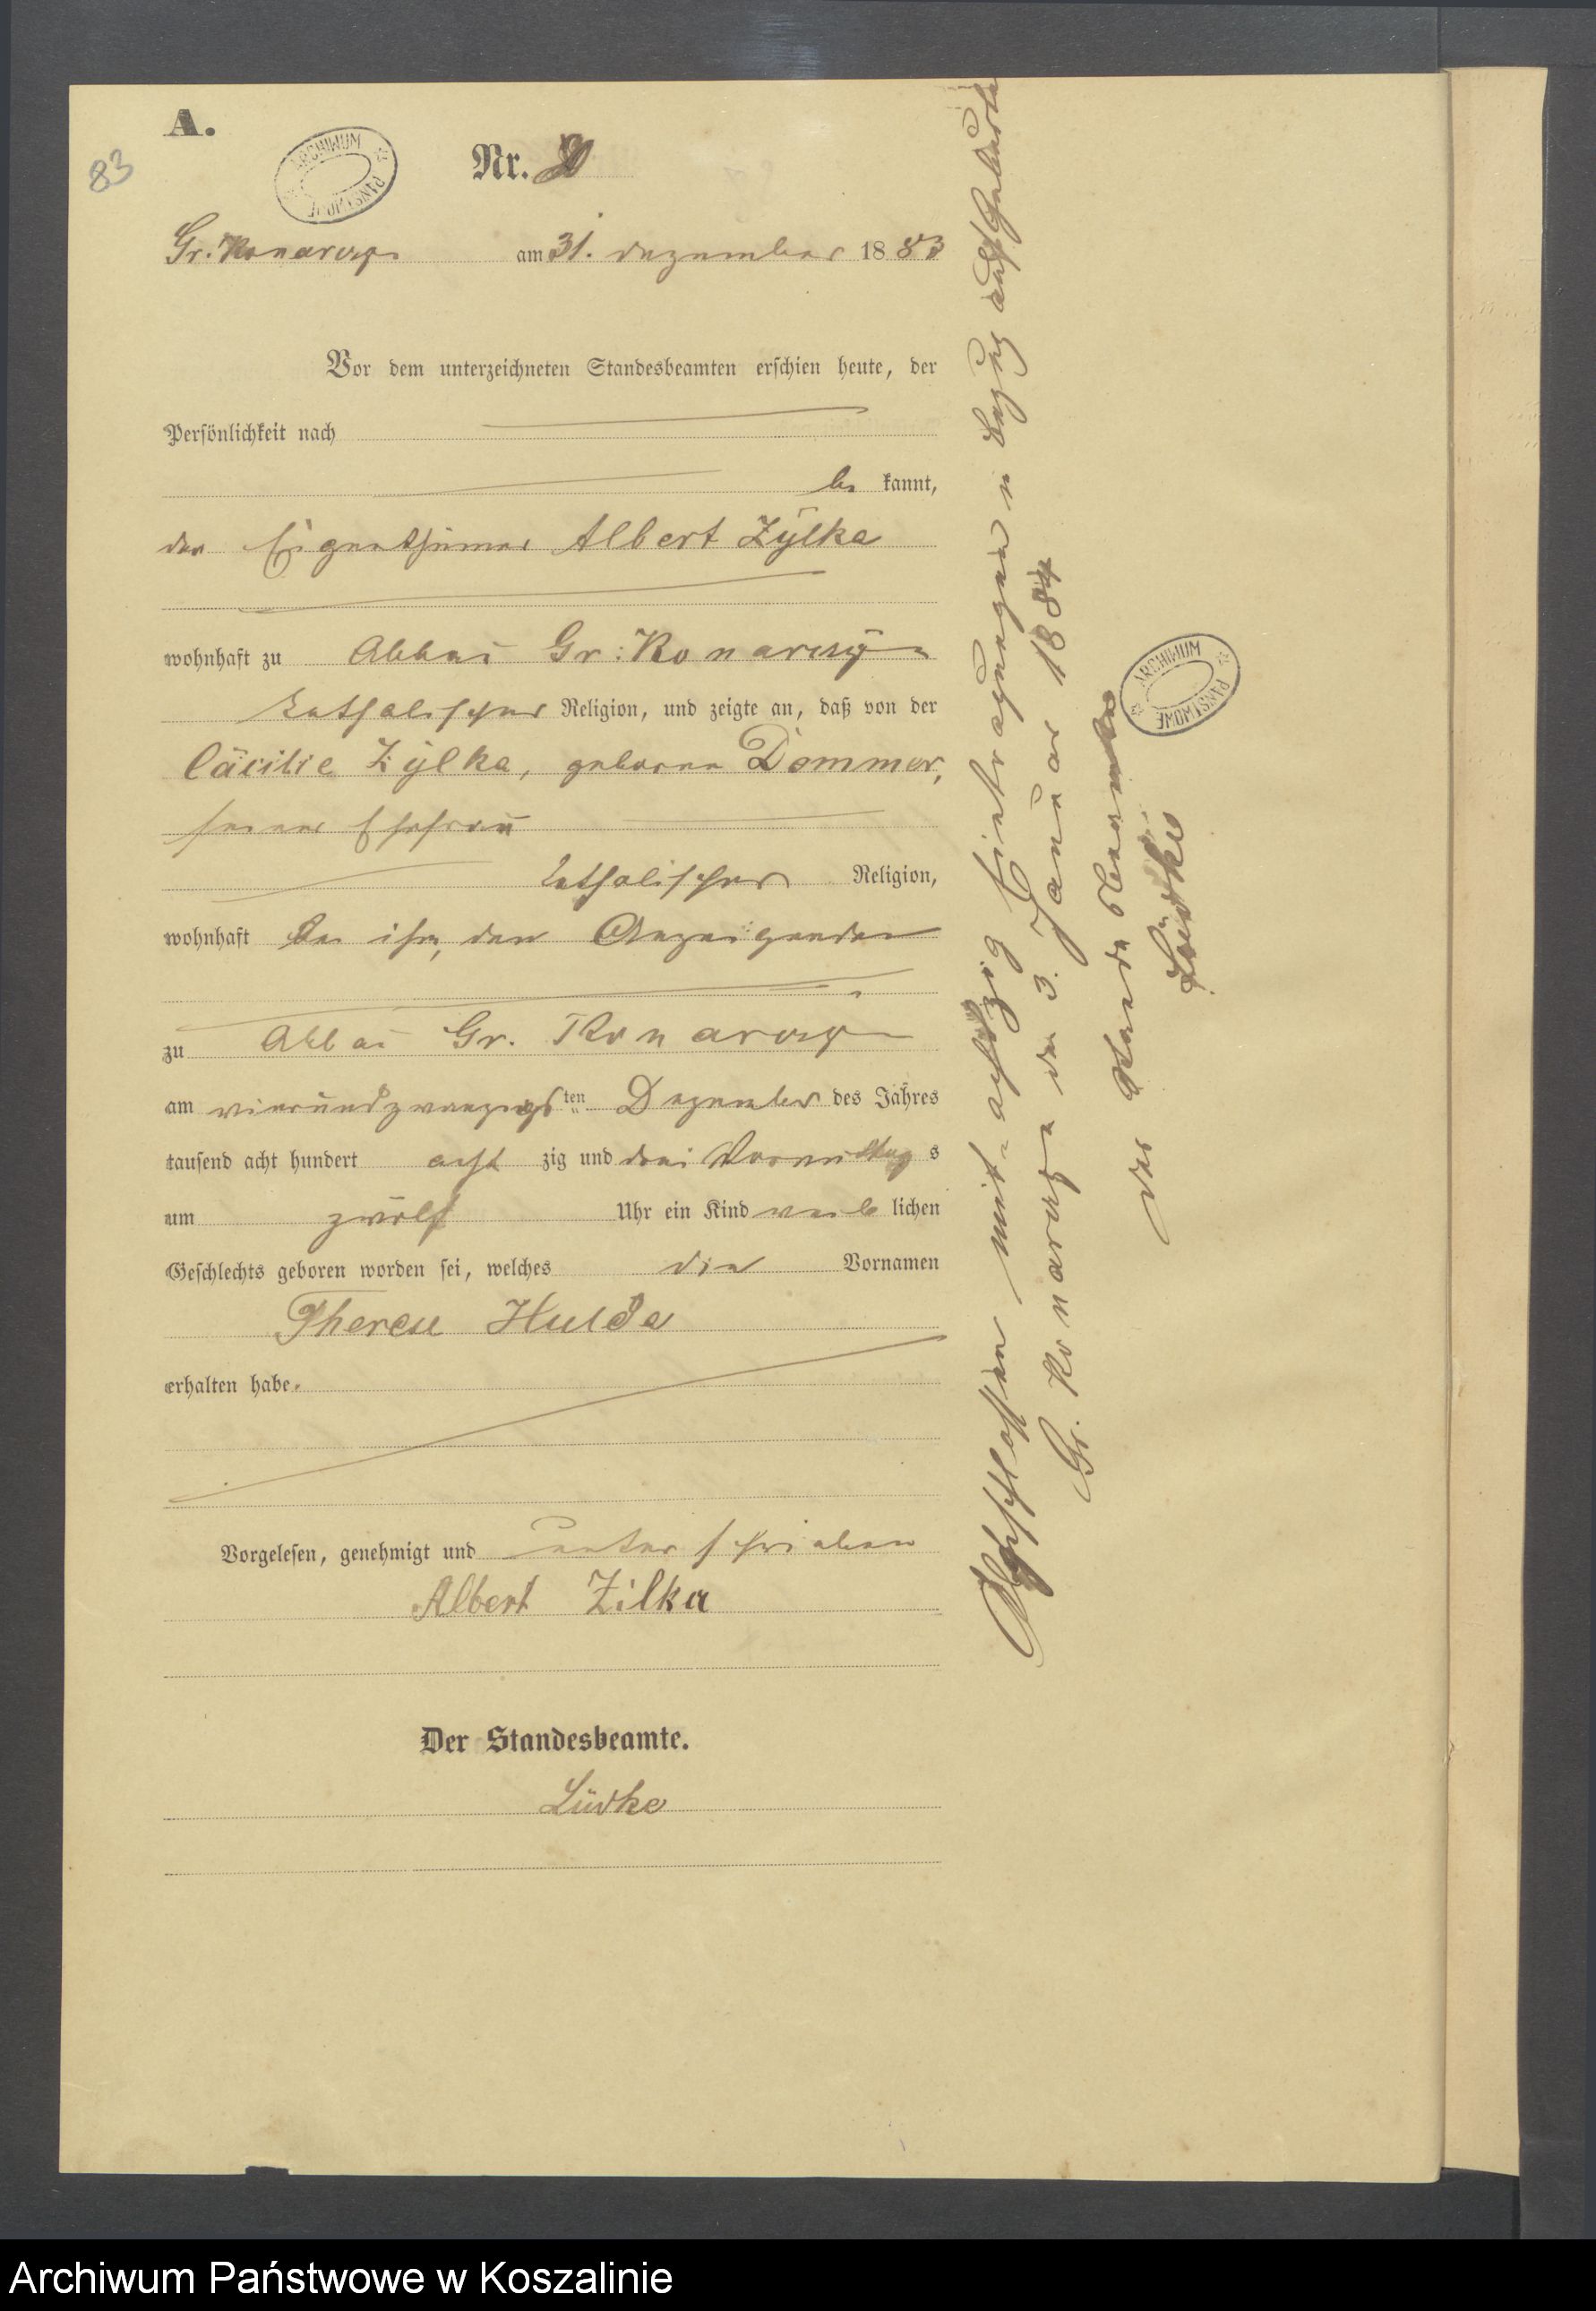 A.
83
ARCHIWUM PAŃSTWOWE
Nr.
Gr. Konarczyn am 31. Dezember 1883
Vor dem unterzeichneten Standesbeamten erschien heute, der
Persönlichkeit nach
be kannt,
der Eigenthümer Albert Zÿlka
wohnhaft zu Abbau Gr: Konarczÿn
katholischer Religion, und zeigte an, daß von der
Cäcilie Zÿlka, geborene Dommer,
seiner Ehefrau
katholischer Religion,
wohnhaft bei ihm, dem Anzeigenden
zu Abbau Gr. Konarczyn
am vierundzwanzigsten Dezember des Jahres
tausend acht hundert acht zig und drei Vormittags
um zwölf Uhr ein Kind weib lichen
Geschlechts geboren worden sei, welches die Vornamen
Therese Hulda
erhalten habe.
Vorgelesen, genehmigt und unterschrieben
Albert Zilka
Der Standesbeamte.
Lüdke
Abgeschlossen mit achtzig Eintragungen in bezug auf Geburten
Gr. Konarczyn den 3. Januar 1884
Der Standesbeamte
Lüdke
ARCHIWUM PAŃSTWOWE
Archiwum Państwowe w Koszalinie